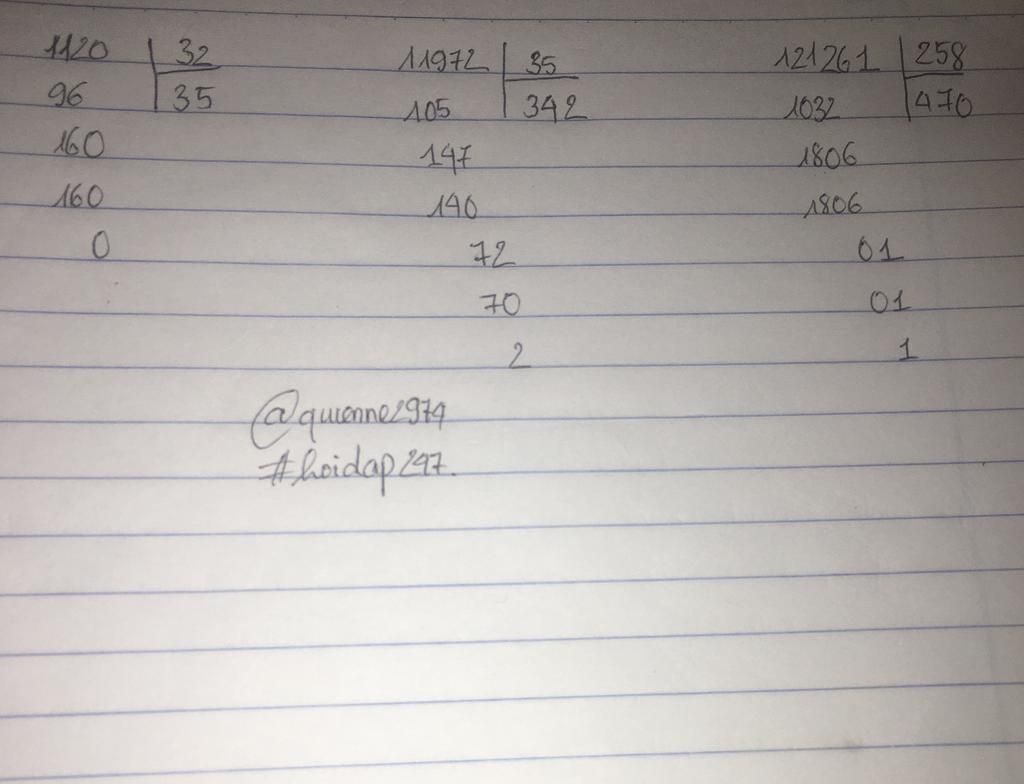 1120 32
96 35
160
160
0
11972 35
105 342
147
140
72
70
2
121261 258
1032 470
1806
1806
01
01
1
@quienne2974
#hoidap247.